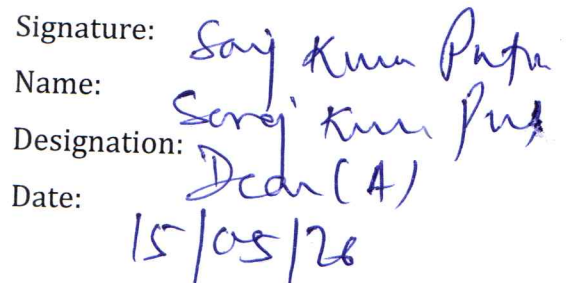 Signature: Saroj Kumar
Name: Saroj Kumar
Designation: Dean (A)
Date: 15/05/26